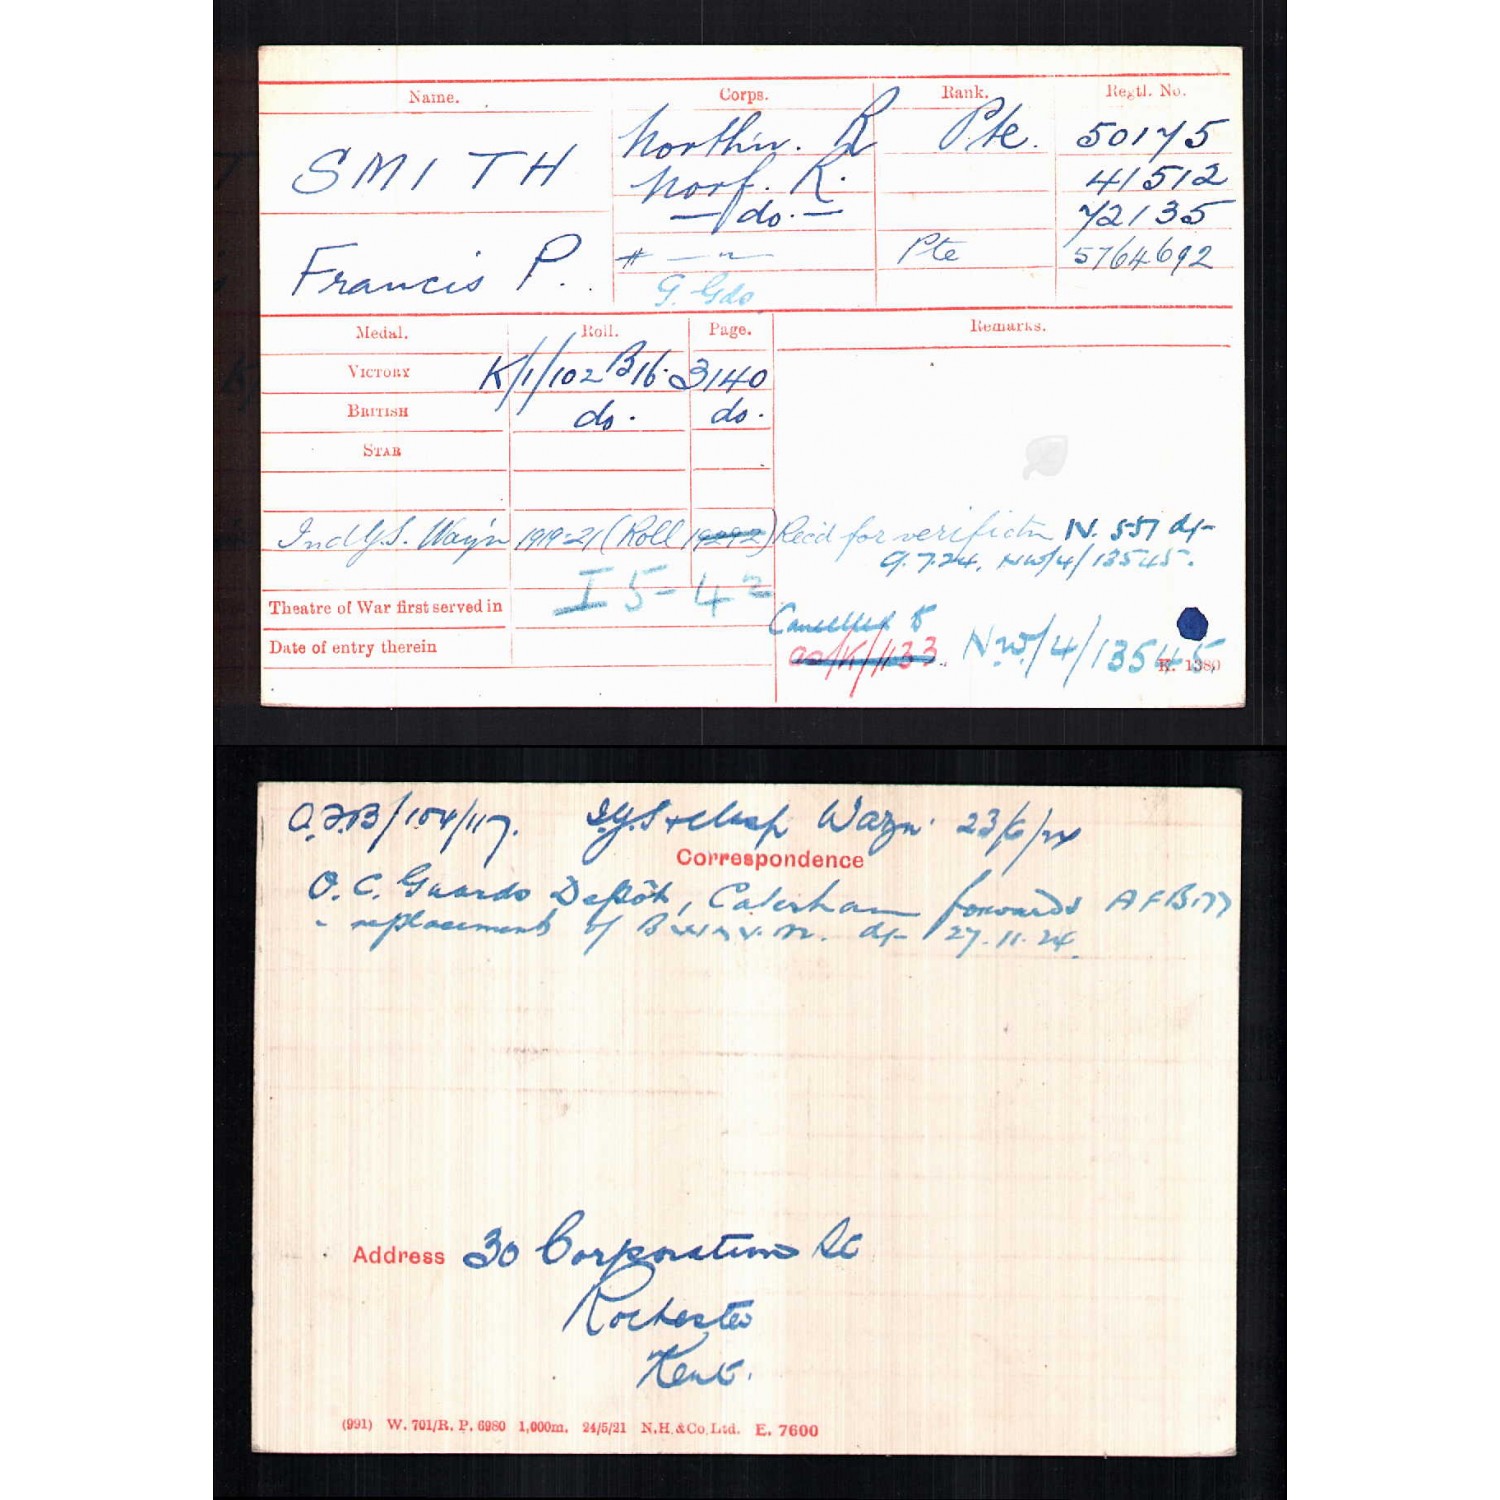 Name. Corps. Rank. Regtl. No.
SMITH
Francis P.
Northn. R Pte. 50175
Norf. R. 41512
— do. — 72135
# — " — Pte 5764692
G. Gds
Medal. Roll. Page. Remarks.
VICTORY K/1/102 B16. 3140
BRITISH do. do.
STAR
Ind G.S. Waz'n 1919-21 (Roll 19292) Recd for verifictn N. 557 d/-
9.7.24. NW/4/13545.
I 5-42
Theatre of War first served in
Date of entry therein
Cancelled
/K/1133 N.W./4/13545
K. 1380
/104/117. I.G.S + clasp Wazn. 23/6/24
Correspondence
O. C. Guards Depôt, Caterham forwards AFB.177
replacement of B.W. & V.M. d/- 27.11.24.
Address 30 Corporation St
Rochester
Kent.
(991) W. 701/R. P. 6980 1,000m. 24/5/21 N.H.&Co. Ltd. E. 7600